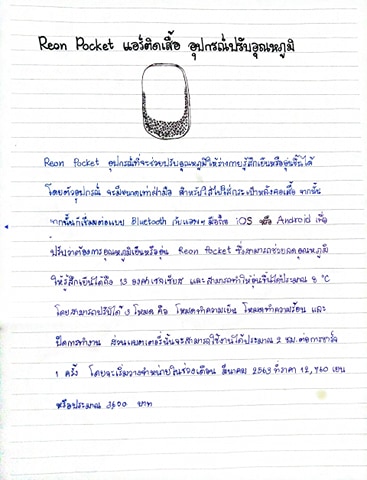 Reon Pocket แอร์ติดเสื้อ อุปกรณ์ปรับอุณหภูมิ
Reon Pocket อุปกรณ์ที่จะช่วยปรับอุณหภูมิให้ร่างกายรู้สึกเย็นหรืออุ่นขึ้นได้
โดยตัวอุปกรณ์ จะมีขนาดเท่าฝ่ามือ สำหรับใส่ไปใส่กระเป๋าหลังคอเสื้อ จากนั้น
จากนั้นก็เชื่อมต่อแบบ Bluetooth กับแอพฯ มือถือ iOS หรือ Android เพื่อ
ปรับว่าต้องการอุณหภูมิเย็นหรืออุ่น Reon Pocket ซึ่งสามารถช่วยลดอุณหภูมิ
ให้รู้สึกเย็นได้ถึง 13 องศาเซลเซียส และสามารถทำให้อุ่นขึ้นได้ประมาณ 8 °C
โดยสามารถปรับได้ 3 โหมด คือ โหมดทำความเย็น โหมดทำความร้อน และ
ปิดการทำงาน ส่วนแบตเตอรี่นั้นจะสามารถใช้งานได้ประมาณ 2 ชม. ต่อการชาร์จ
1 ครั้ง โดยจะเริ่มวางจำหน่ายในช่วงเดือน มีนาคม 2563 ที่ราคา 12,760 เยน
หรือประมาณ 3,600 บาท